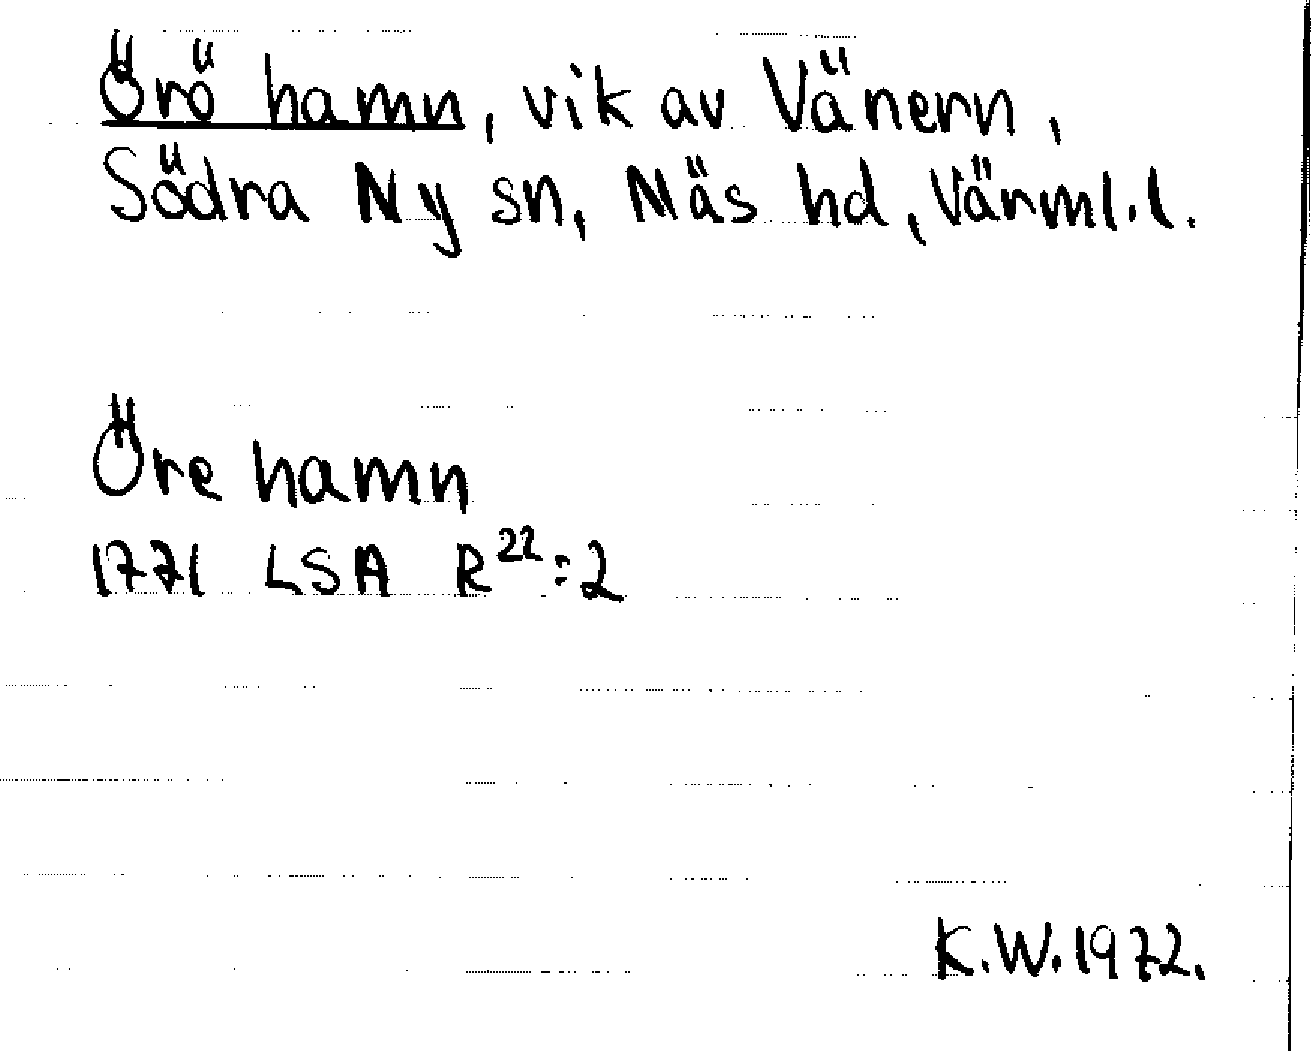 Örö hamn, vik av Vänern,
Södra Ny sn, Näs hd, Värml.l.
Öre hamn
1771 LSA R²²:2
K.W.1972.